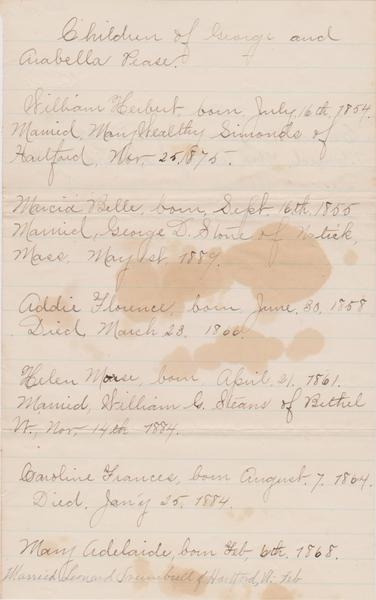 Children of George and
Arabella Pease.
William Herbert, born, July 16th, 1854.
Married, Mary Wealthy Simonds of
Hartford, Nov. 25, 1875.
Marcia Belle, born, Sept. 16th. 1855
Married, George D. Stone of Natick,
Mass, May 1st 1889.
Addie Florence, born, June, 30, 1858
Died, March 23. 1860.
Helen Morse, born, April, 21. 1861.
Married, William G. Stearns of Bethel
Vt, Nov. 14th 1884.
Caroline Frances, born August. 7. 1864.
Died. Jan'y 25. 1884.
Mary Adelaide, born Feb, 6th. 1868.
Married Leonard Trumbull of Hartford, Vt. Feb